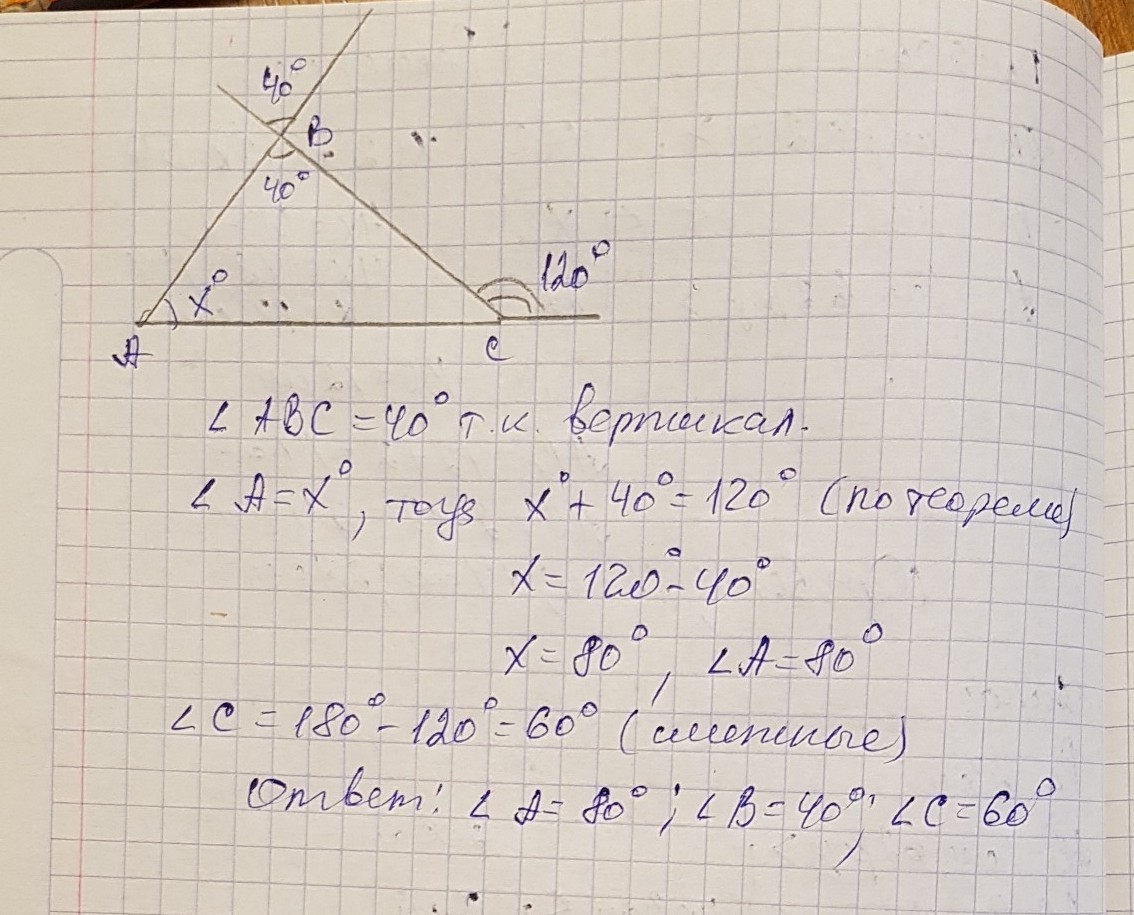 40°
B
40°
120°
x°
A
C
∠ ABC = 40° т.к. вертикал.
∠ A = x°, тогда x° + 40° = 120° (по теореме)
x = 120° - 40°
x = 80°, ∠A = 80°
∠C = 180° - 120° = 60° (смежные)
Ответ: ∠ A = 80°; ∠B = 40°; ∠C = 60°